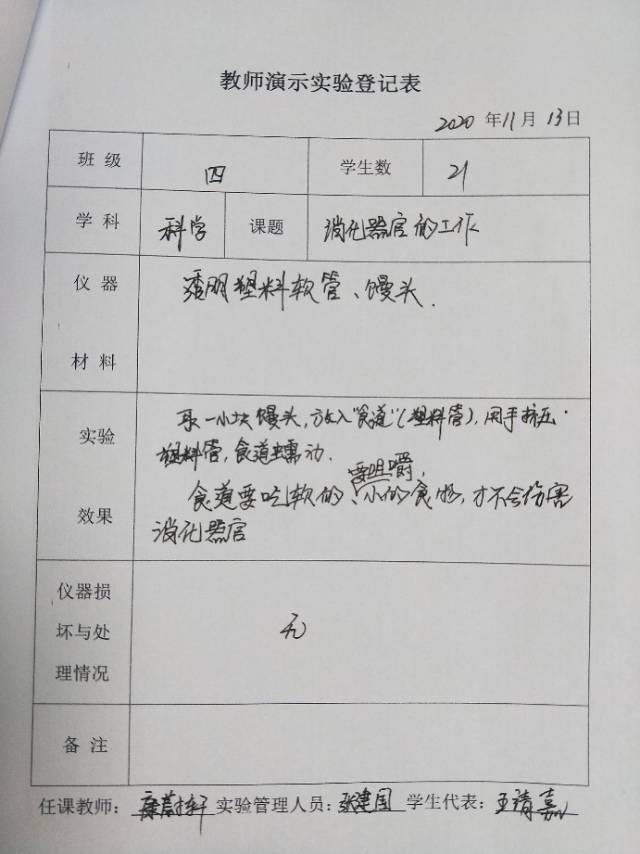 教师演示实验登记表
2020 年 11 月 13 日
班级 四 学生数 21
学科 科学 课题 消化器官的工作
仪器 透明塑料软管、馒头.
材料
实验 取一小块馒头,放入"食道"(塑料管),用手挤压
塑料管,食道蠕动.
要咀嚼,
食道要吃软的、小的食物,才不会伤害
效果 消化器官
仪器损
坏与处 无
理情况
备注
任课教师: 实验管理人员:张建国 学生代表:王靖嘉